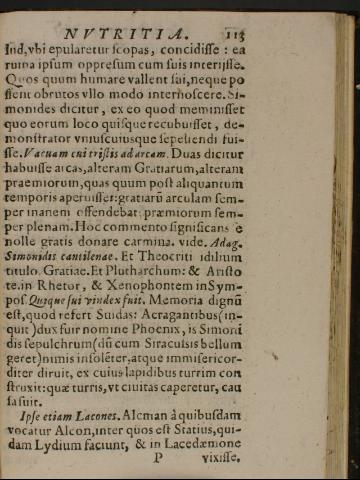 NVTRITIA. 113
Ind, vbi epularetur scopas, concidisse : ea
ruina ipsum oppresum cum suis interijsse.
Quos quum humare vallent sui, neque po
ssent obrutos vllo modo internoscere. Si-
monides dicitur, ex eo quod meminisset
quo eorum loco quisque recubuisset, de-
monstrator vniuscuiusque sepeliendi fui-
sse. Vacuam cui tristis ad arcam. Duas dicitur
habuisse arcas, alteram Gratiarum, alteram
praemiorum, quas quum post aliquantum
temporis aperuisset: gratiarũ arculam sem-
per inanem offendebat: præmiorum sem-
per plenam. Hoc commento significans e
nolle gratis donare carmina. vide. Adag.
Simonidis cantilenae. Et Theocriti idilium
titulo. Gratiae. Et Plutharchum: & Aristo
te. in Rhetor, & Xenophontem in Sym-
pos. Quique sui vindex fuit. Memoria dignũ
est, quod refert Suidas: Acragantibus (in-
quit) dux fuit nomine Phoenix, is Simoni
dis sepulchrum (dũ cum Siracusis bellum
geret) nimis insolẽter, atque immisericor-
diter diruit, ex cuius lapidibus turrim con
struxit: quæ turris, vt ciuitas caperetur, cau
sa fuit.
Ipse etiam Lacones. Alcman à quibusdam
vocatur Alcon, inter quos est Statius, qui-
dam Lydium faciunt, & in Lacedæmone
P vixisse.